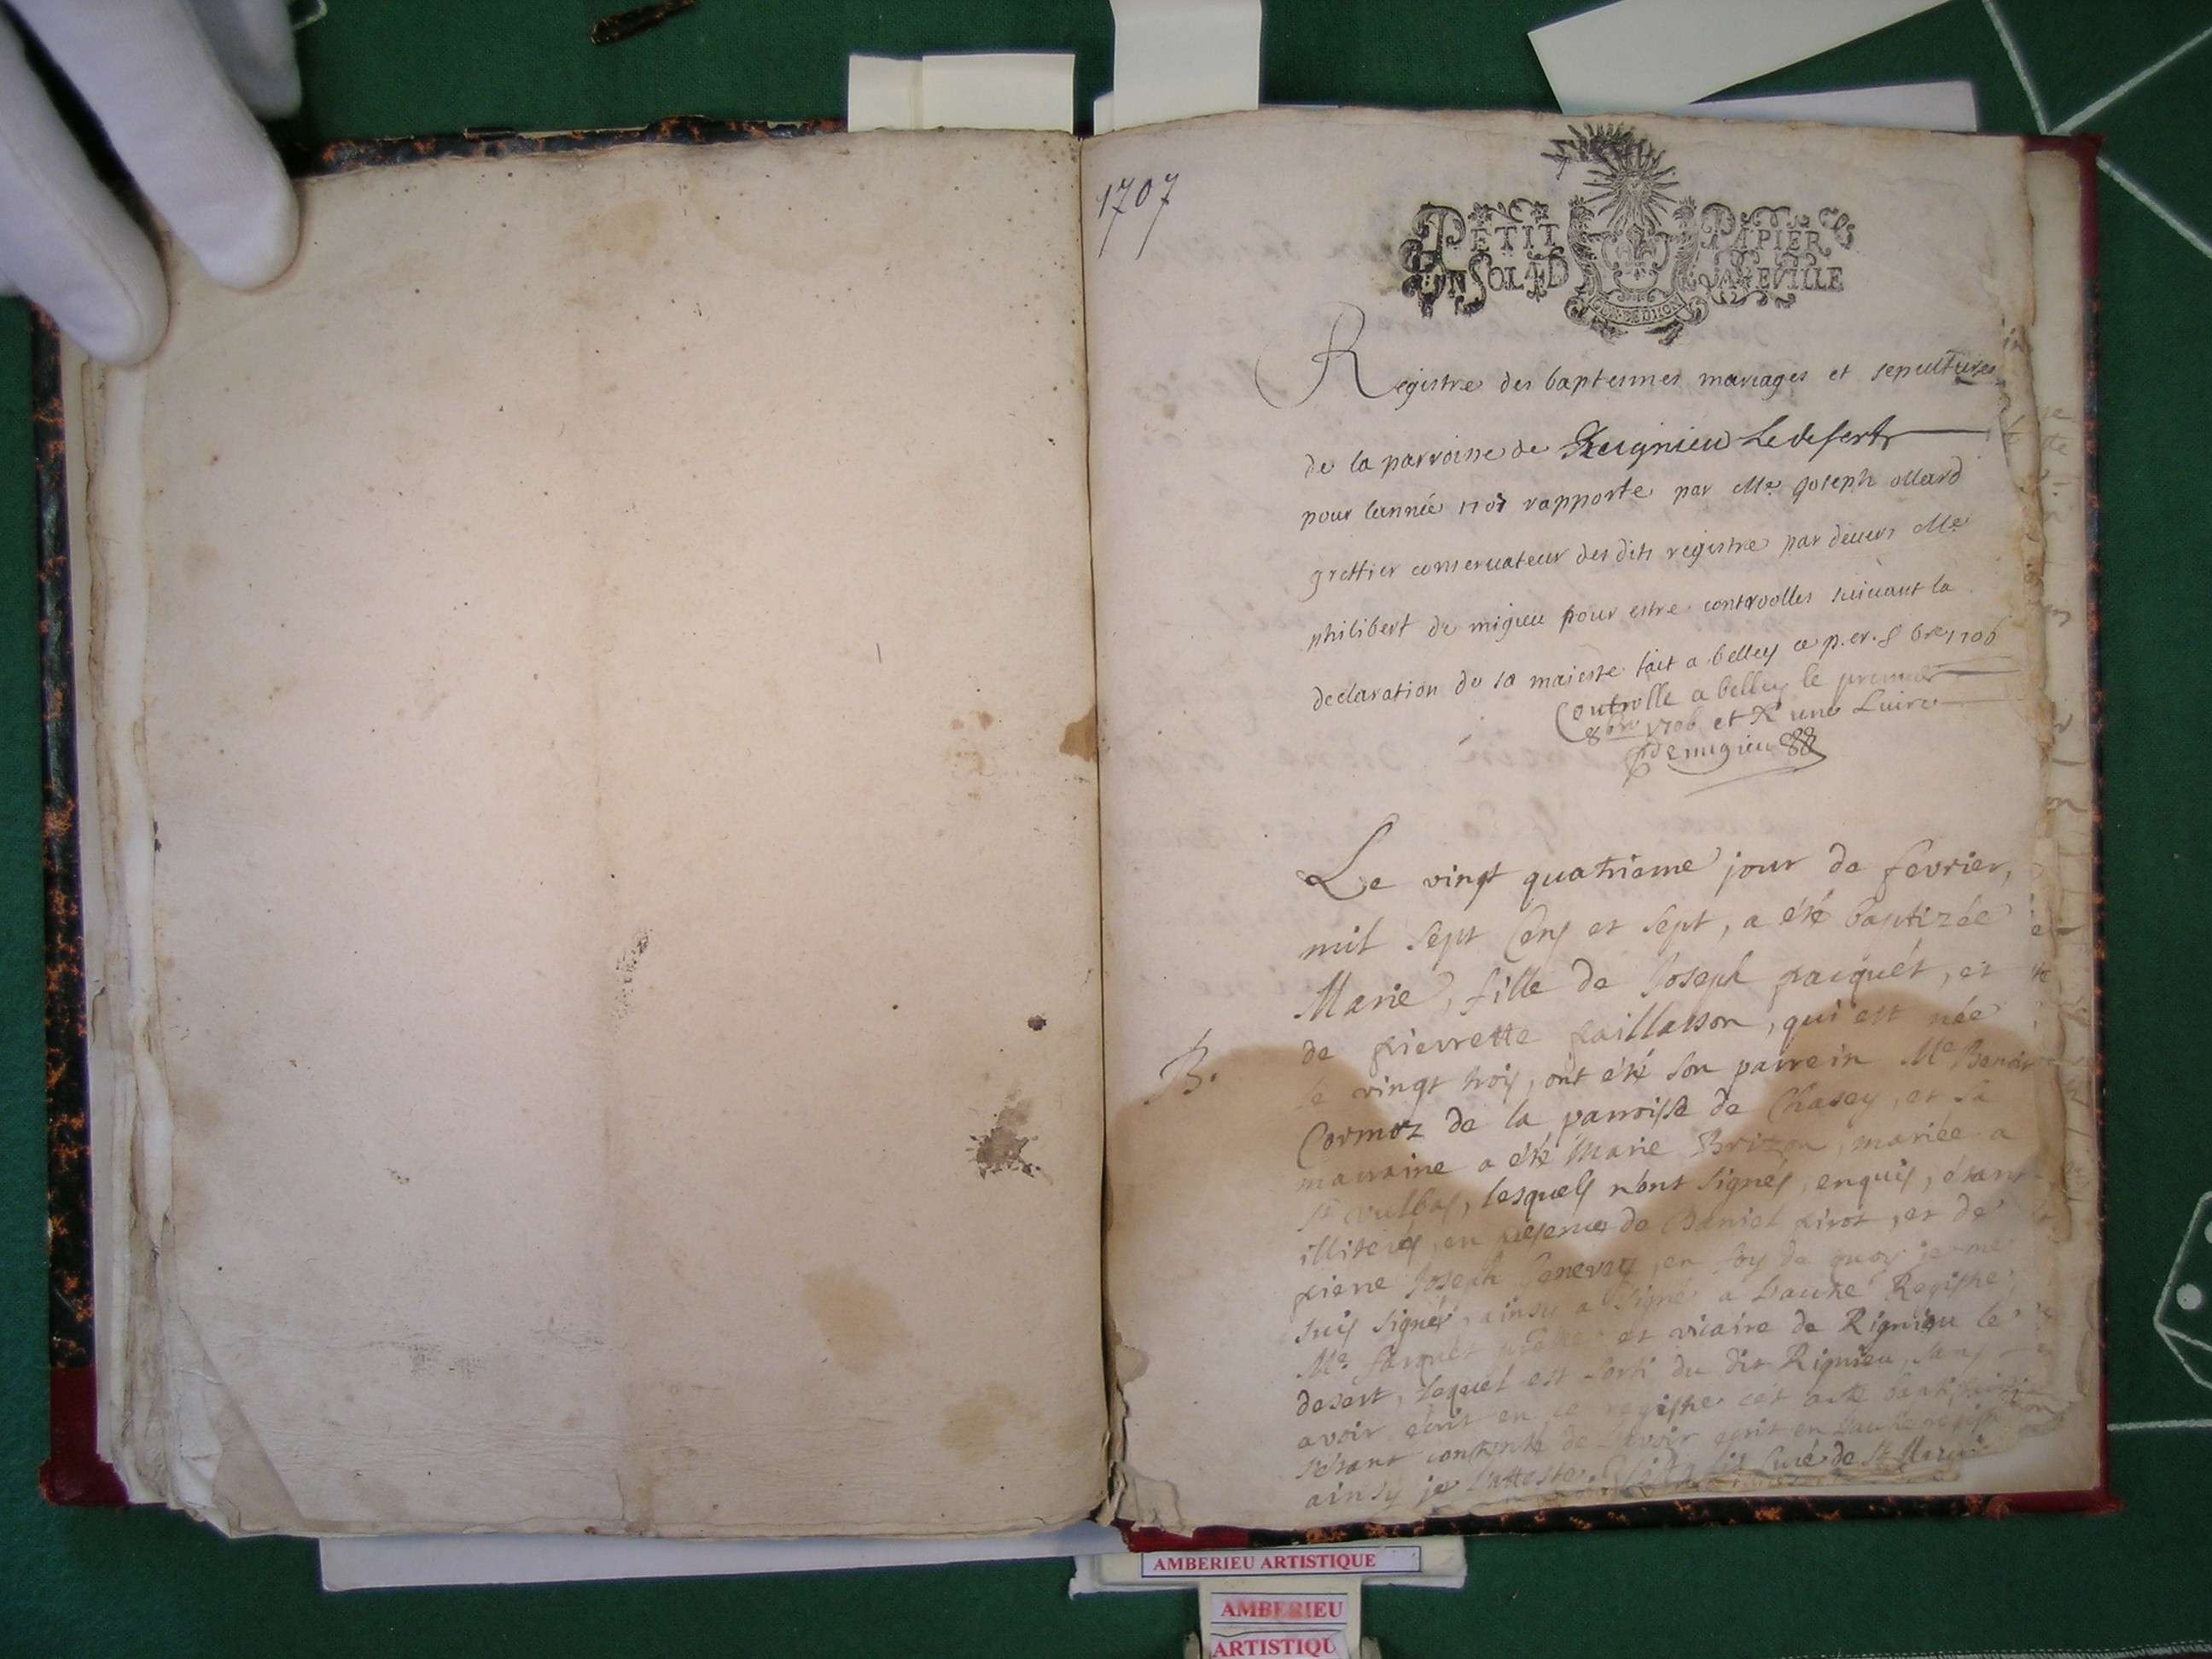 1707
PETIT PAPIER
UN SOL 4 D LA FEVILLE
GEN. DE DIJON
Registre des baptesmes mariages et sepultures
de la parroisse de Reignieu Le desert
pour lannée 1707 rapporte par Me Joseph ollard
greffier conseruateur des dits registre par deuers Me
philibert de migieu pour estre controolles suiuant la
declaration de sa maieste fait a belley ce p.er 8bre 1706
Controlle a belley le premier
8bre 1706 et R une Liure
demigieu
Le vingt quatrieme jour de fevrier,
mil sept Cens et sept, a été baptizée
Marie, fille de Joseph pacquét, et
B.
de pierrette paillasson, qui est née
le vingt trois, ont été son parrein Me Benoit
Cormoz de la parroisse de Chasey, et sa
marraine a été Marie Brizon, mariée a
St vulbas, lesquels n'ont signés, enquis, étant
illiterés, en presence de Daniel pirot, et de
pierre Joseph Genevay, en foy de quoy je me
suis signé, ainsy a signé a L'autre Registre
Me pretre et vicaire de Rignieu le
desert, lequel est sorti du dit Rignieu, sans
avoir écrit en ce registre cet acte
s'etant contenté de l'avoir ecrit en l'autre registre
ainsy je L'atteste Curé de St
AMBERIEU ARTISTIQUE
AMBERIEU
ARTISTIQU